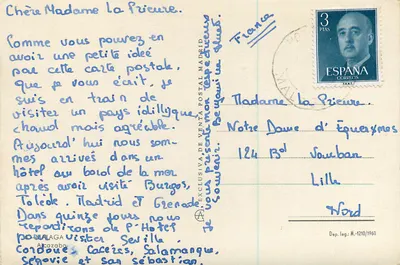 Chère Madame La Prieure.
Comme vous pouvez en
avoir une petite idée
par cette carte postale,
que je vous écrit, je
suis en train de
visiter un pays idillyque,
chaud mais agréable.
Aujourd' hui nous som-
mes arrivés dans un
hôtel au bord de la mer
après avoir visité Burgos,
Tolède, Madrid et Grenade
Dans quinze jours nous
repartirons de l'Hôtel
pour visiter Séville
Cordoues Cacères, Salamanque,
Ségovie et san Sébastien.
Je vous transmets mon respectueux
souvenir.
EXCLUSIVA DE VENTA POSTAL MADRID
(France)
3
PTAS
ESPAÑA
CORREOS
Madame La Prieure.
Notre Dame d'Equermes
124 Bd Vauban
Lille
Nord
Dep. leg. M.-1210/1960